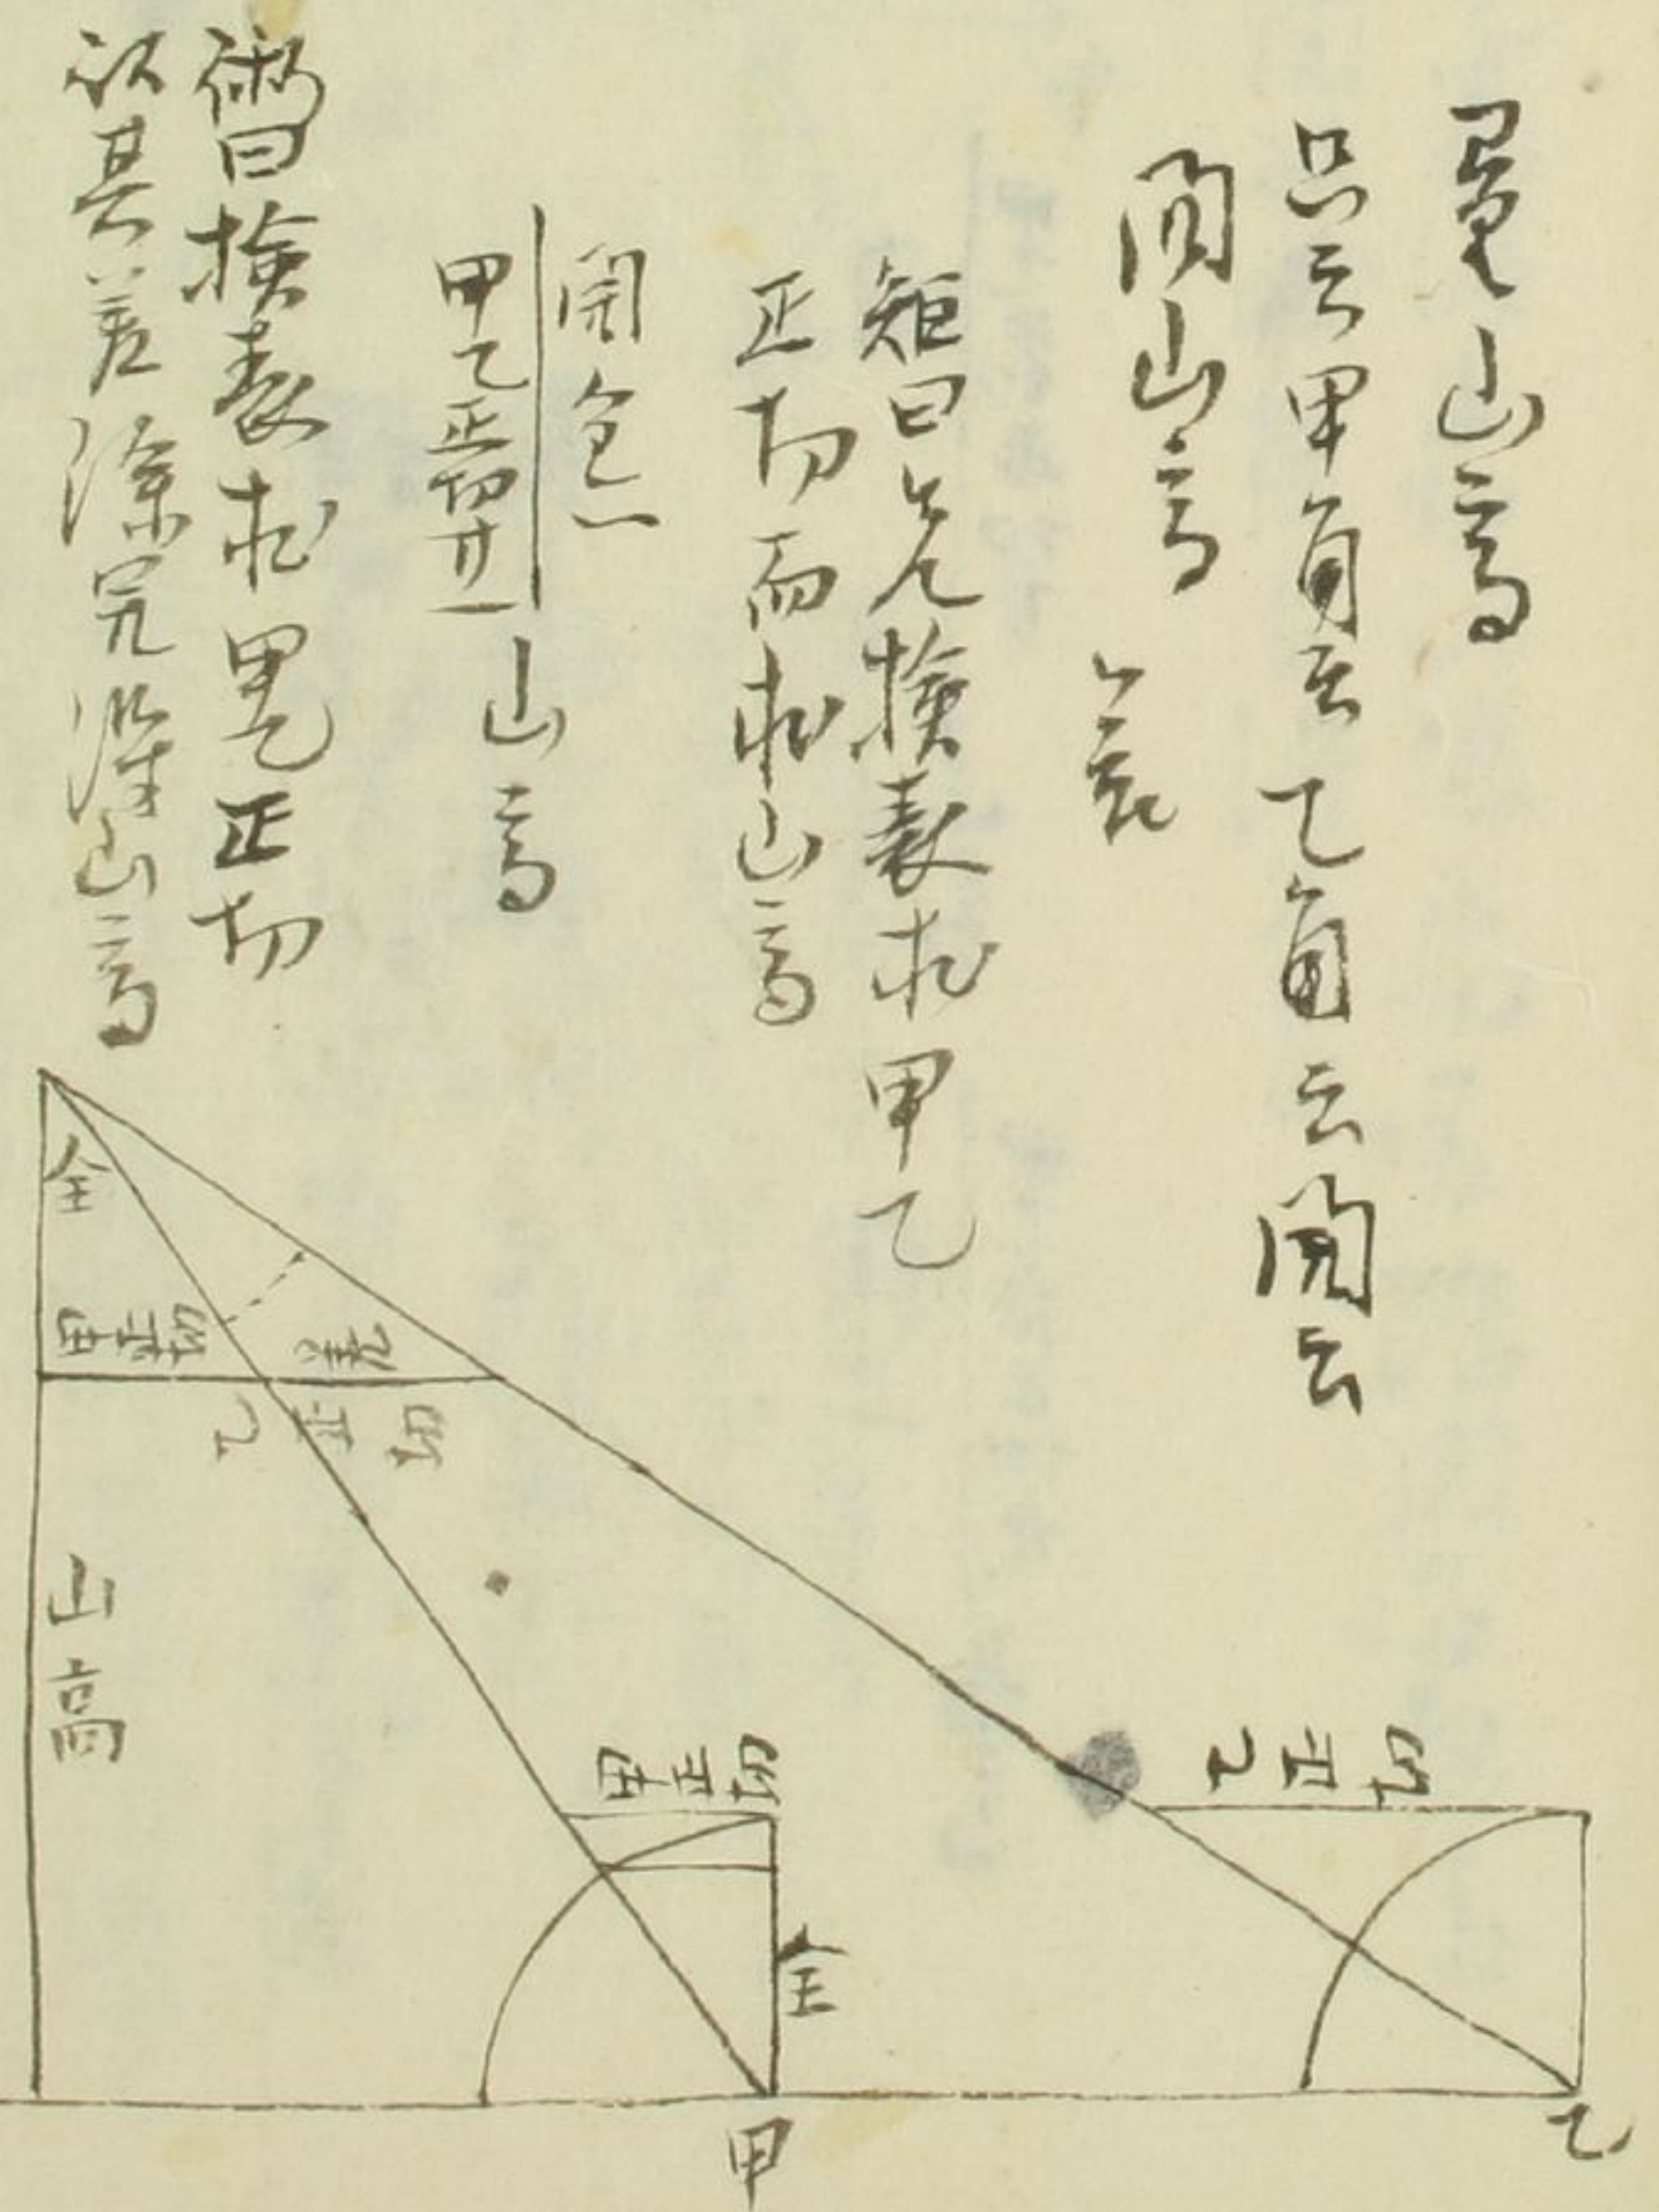 量山高
只云甲角云乙角云間云
問山高
矩曰先撿表求甲乙
正切而求山高
間仝一
甲乙正切差一
山高
術曰撿表求甲乙正切
以其差除完得山高
全
甲正切
差
乙正切
山高
甲正切
乙正切
全
甲
乙